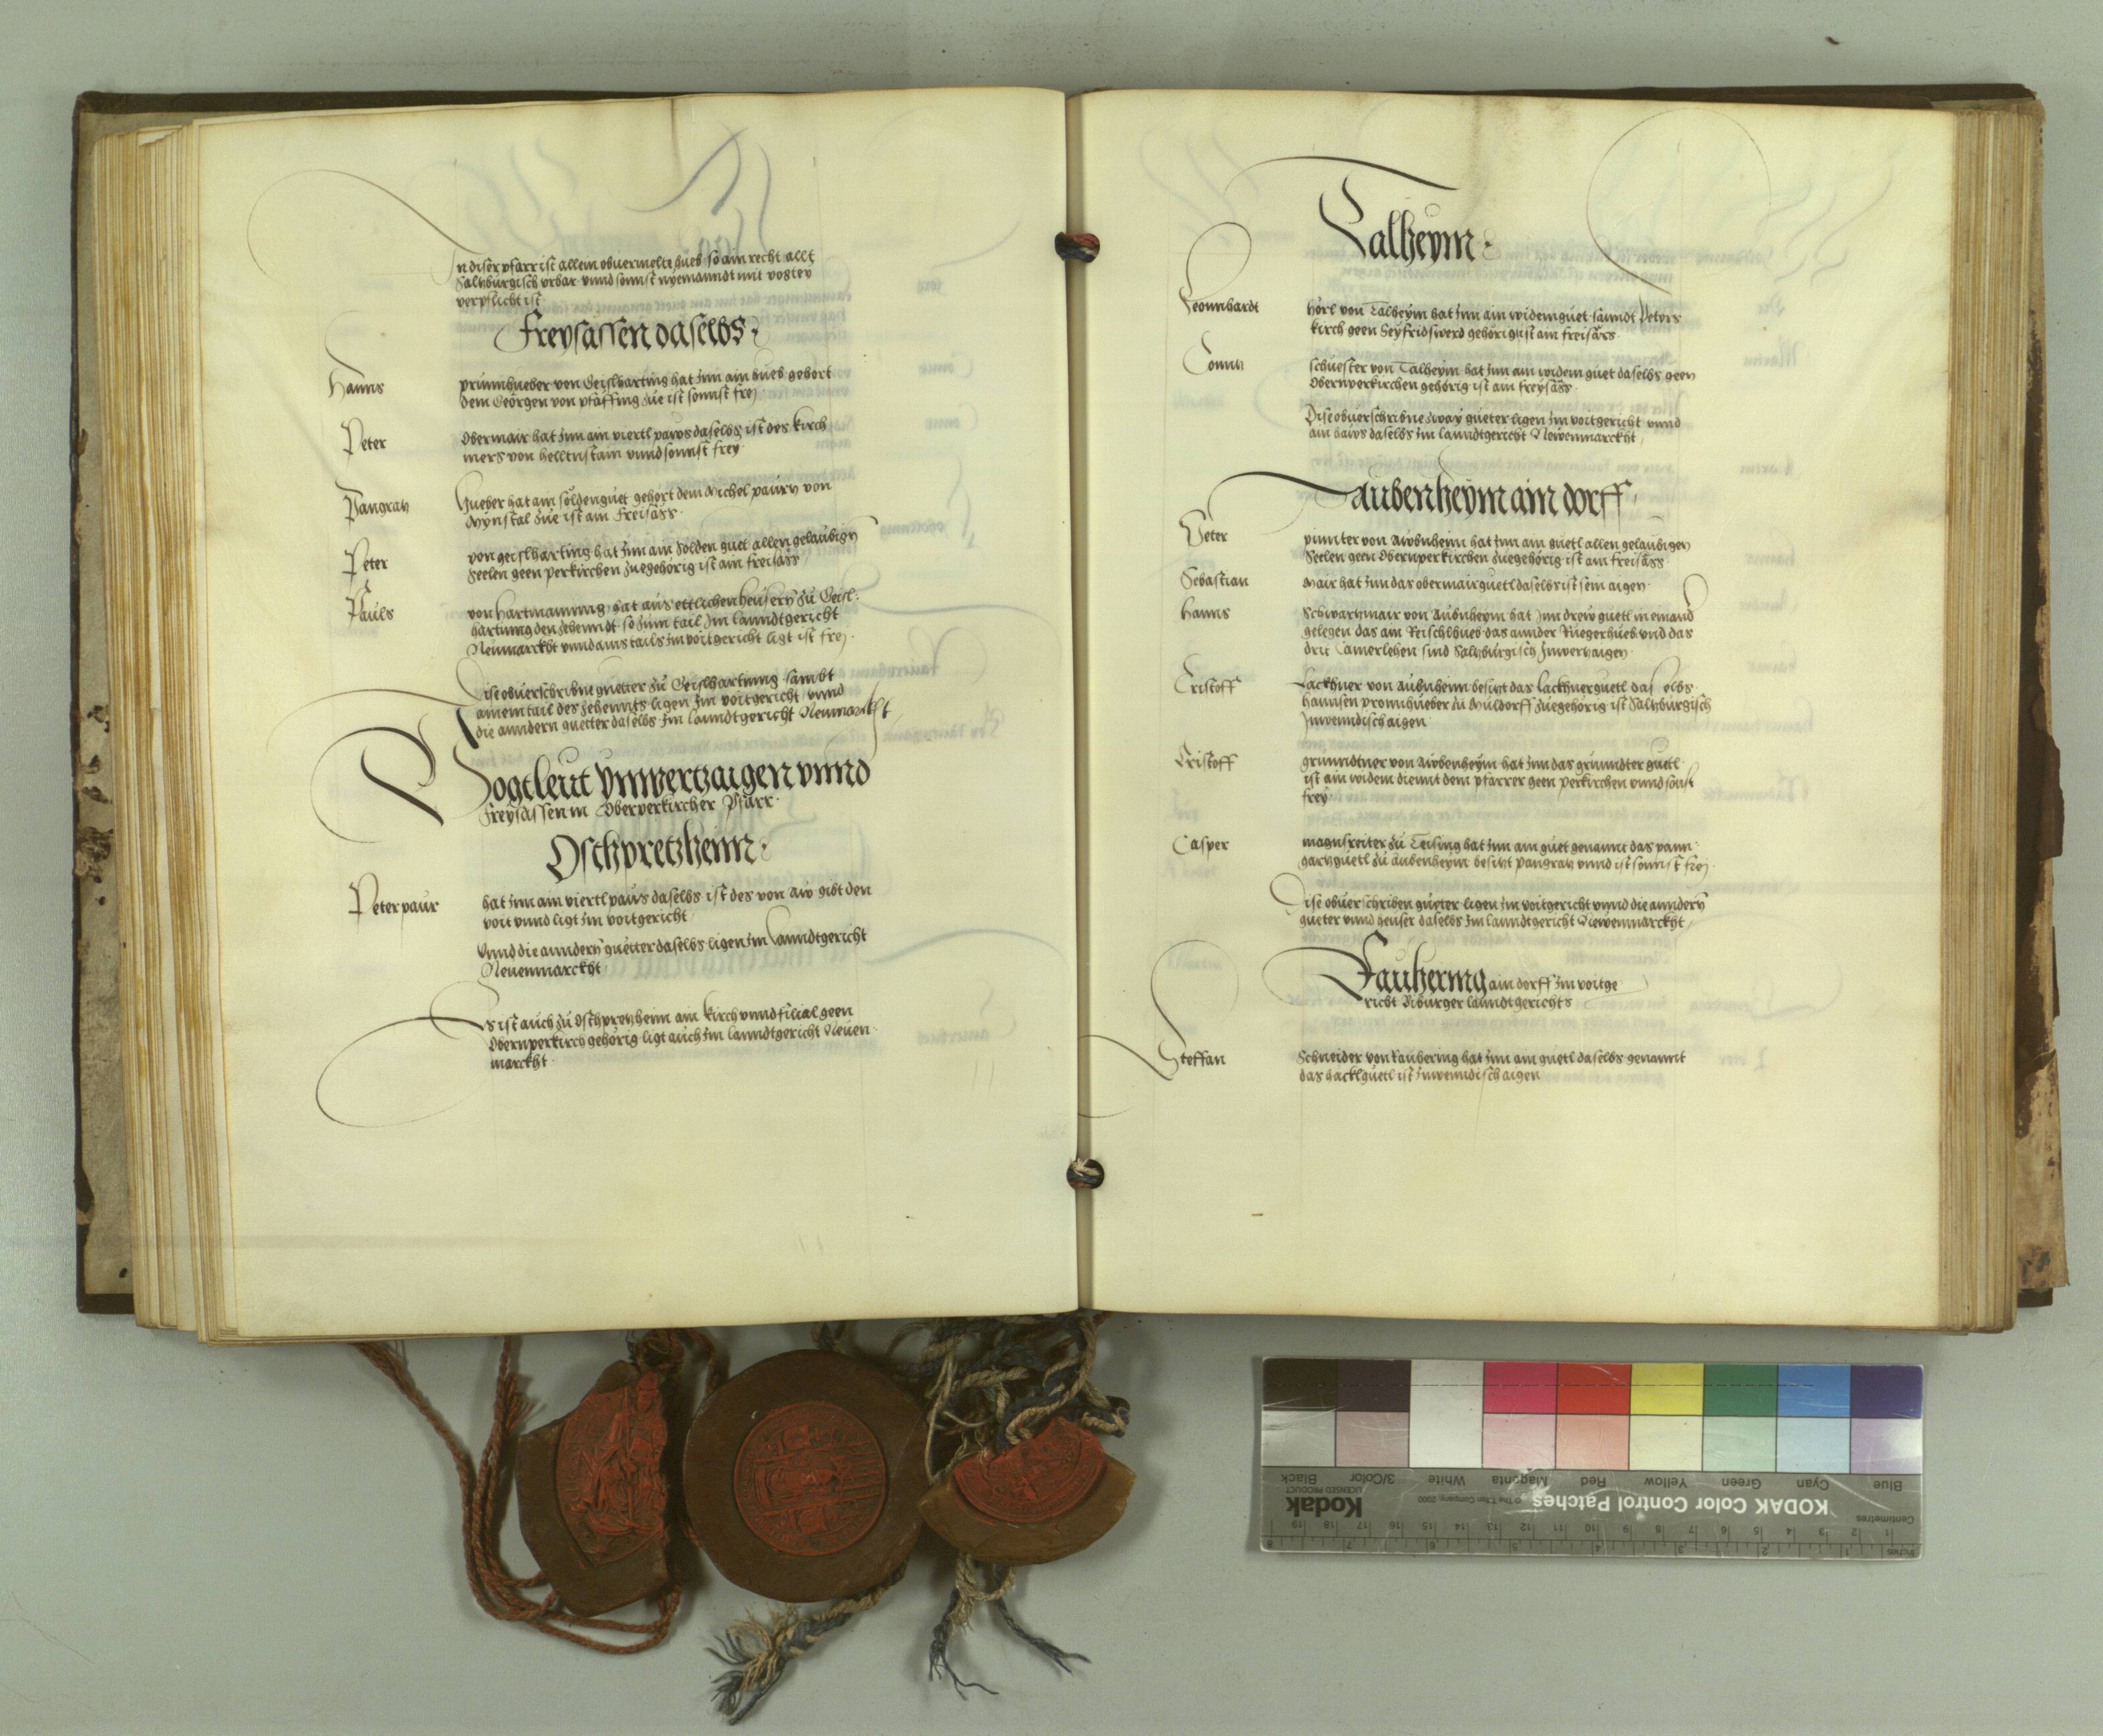 In diser pfarr ist allein obuermelte hueb so ain recht allt
Saltzburgisch vrbar vnnd sonnst nyemanndt mit vogtey
verpflicht ist
Freysassen daselbs
Hanns prunnhueber von Geislharting hat Inn ain hueb gehort
dem Georgen von pfäffing Zue ist sonnst frej
Peter Obermair hat Inn ain viertl paws daselbs ist des kirch
mers von Helltnstain vnnd sonnst frey
Pangratz Hueber hat ain söldenguet gehört dem Michel paurn von
Mynstal Zue ist ain freisäss
Peter von geislharting hat Inn ain Sölden guet allen gelaubign
Seelen geen perkirchen Zuegehörig ist ain freisäss
Pauls von Hartmanning hat aus ettlichen heusern Zu Geisl
hartung den Zehenndt so Zum tail Im lanndtgericht
Neumarckht vnnd ains tails Im voitgericht ligt ist frej
Dise obuerschribn guetter Zu Geislhartung sambt
ainem tail des Zehennts ligen Im voitgericht vnnd
die anndern guetter daselbs Im lanndtgericht Neumarckht
Vogtleut ynwertzaigen vnnd
Freysassen in Oberperkircher Pfarr
Oschpretzheim
Peter paur hat Inn ain viertl paws daselbs ist des von aw gibt den
voit vnnd ligt Im voitgericht
Vnnd die anndern guetter daselbs ligen Im Lanndtgericht
Neuenmarckht
Es ist auch Zu Oschpretzheim ain kirch vnnd filial geen
Obernperkirch gehörig ligt auch Im lanndtgericht Neuen
marckht
Talheym
Leonnhardt hörl von Talheym hat Inn ain widem guet sanndt Peters
kirch geen Seyfridswerd gehörig ist ain freisäss
Conntz schuester von Talheym hat Inn ain widem guet daselbs geen
Obernperkirchen gehörig ist ain freysäss
Dise obuerschribne Zway gueter ligen Im voitgericht vnnd
ain haws daselbs Im lanndtgericht Newenmarckht
Aubenheym ain dorff
Peter pinnter von Awbnheim hat Inn ain guetl allen gelaubigen
Seelen geen Obernperkirchen Zuegehörig ist ain freisäss
Sebastian Mair hat Inn das obermairguetl daselbs ist sein aigen
Hanns Schwartzmair von Aubnheym hat Inn drew guetl in einand
gelegen das ain Reischlhueb das annder Ruegerhueb vnd das
drit Camerlehen sind Saltzburgisch Inwertzaigen
Cristoff Lackhner von Aubnheim besitzt das lackhnerguetl daselbs
hannsen pronnhueber Zu Muldorff Zuegehörig ist Saltzburgisch
Inwenndisch aigen
Cristoff grunndtner von Awbenheym hat Inn das grunndter guetl
ist ain widem diennt dem pfarrer geen perkirchen vnnd sonst
frey
Casper magnsreiter Zu Teising hat Inn ain guet genannt das pann
gartzguetl Zu Aubenheym besitzt pangratz vnnd ist sonnst frej
Dise obuerschriben gueter ligen Im voitgericht vnnd die anndern
gueter vnnd heuser daselbs Im lanndtgericht Newenmarckht
Tauhering ain dorff Im voitge
richt Biburger lanndtgerichts
Steffan Schneider von tauhering hat Inn ain guetl daselbs genannt
das hacklguetl ist Inwenndisch aigen
KODAK Color Control Patches
Kodak
LICENSED PRODUCT
© The Tiffen Company, 2000
Blue Cyan Green Yellow Red Magenta White 3/Color Black
Centimetres
Inches
1 2 3 4 5 6 7 8 9 10 11 12 13 14 15 16 17 18 19
1 2 3 4 5 6 7 8